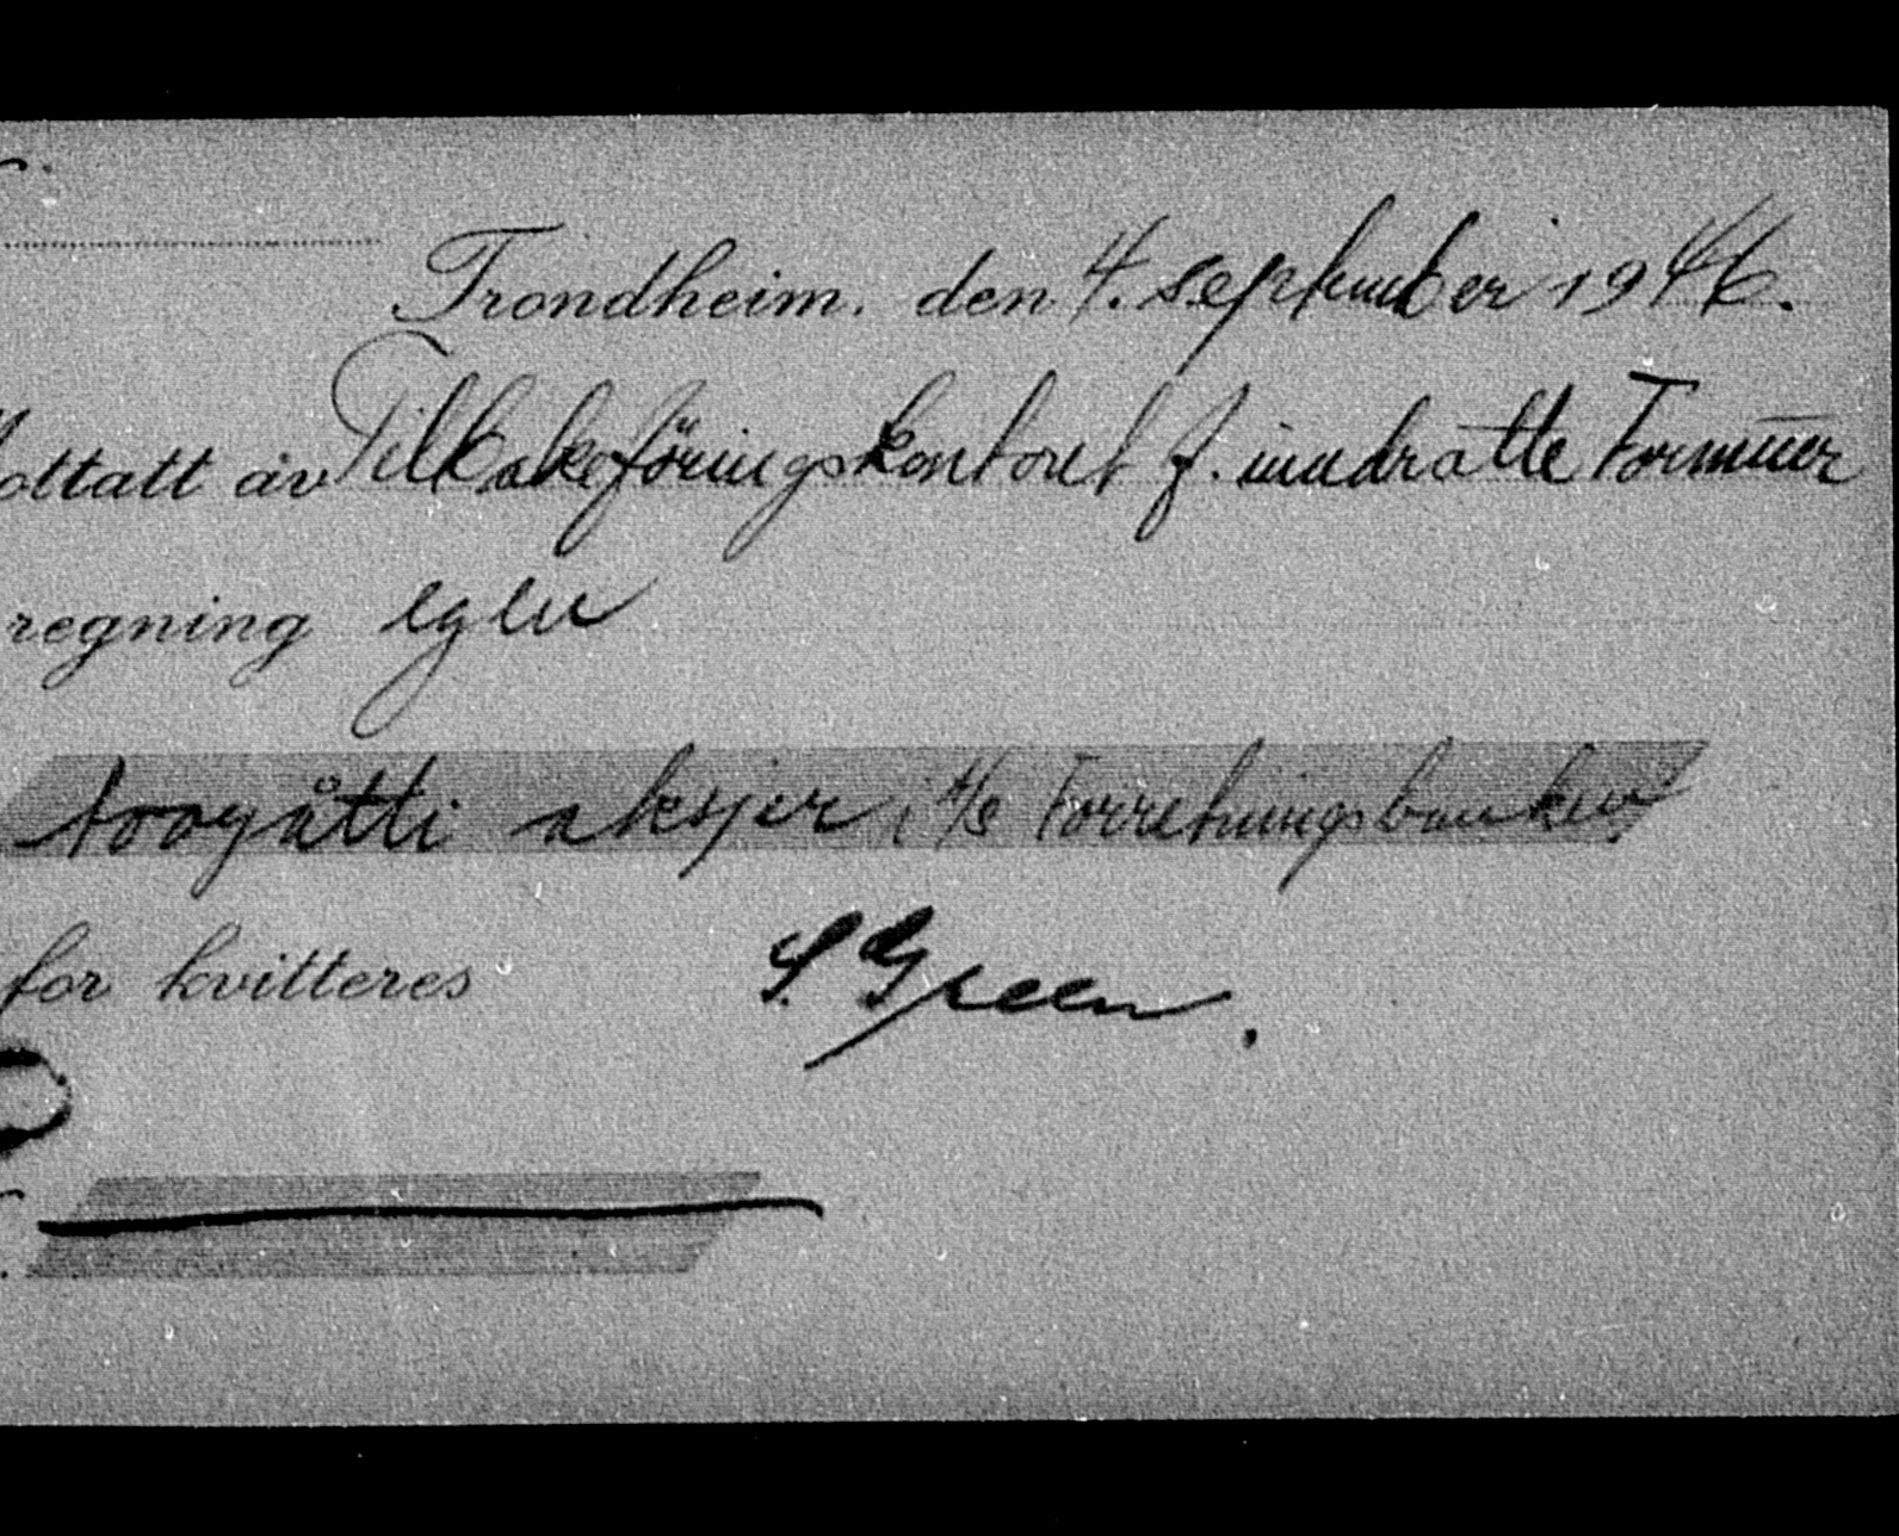 Trondheim, den 4. september 1946.
ottatt av Tilbakeføringskontoret f. inndratte Formuer
regning egen
tooogåtti aksjer i A/S Forretningsbanken
for kvitteres S. Green.